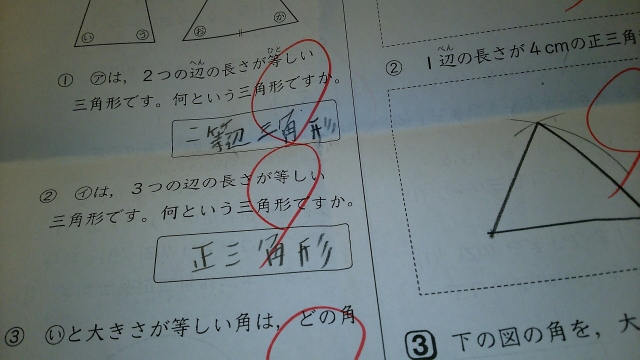 い う お か
① ㋐は，２つの辺の長さが等しい
三角形です。何という三角形ですか。
二等辺三角形
② ㋑は，３つの辺の長さが等しい
三角形です。何という三角形ですか。
正三角形
③ ㋑と大きさが等しい角は，どの角
② １辺の長さが４cmの正三角
３ 下の図の角を，大